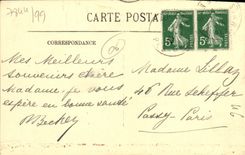 7844/99
CARTE POSTA
CORRESPONDANCE
Mes Meilleurs
Souvenirs chère
Madame je vous
espère en bonne santé
Madame
46 Rue Scheffer
Passy Paris
5c
5c